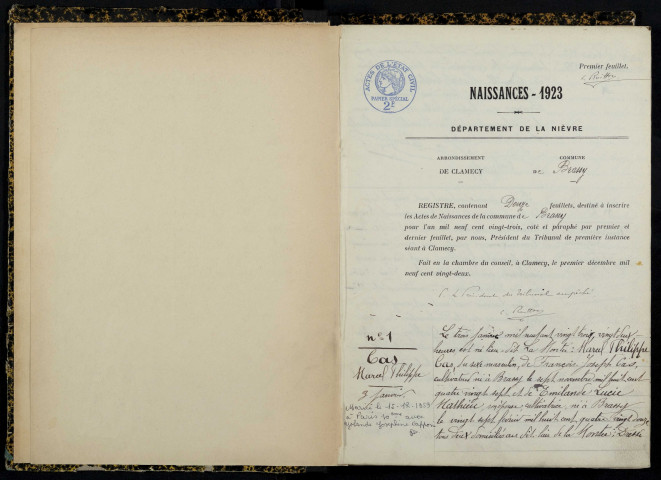 Premier feuillet.
ACTES DE L'ETAT CIVIL
PAPIER SPÉCIAL
2F
NAISSANCES - 1923
DÉPARTEMENT DE LA NIÈVRE
ARRONDISSEMENT
DE CLAMECY
COMMUNE
de Brassy
REGISTRE, contenant Douze feuillets, destiné à inscrire
les Actes de Naissances de la commune de Brassy
pour l'an mil neuf cent vingt-trois, coté et paraphé par premier et
dernier feuillet, par nous, Président du Tribunal de première instance
séant à Clamecy.
Fait en la chambre du conseil, à Clamecy, le premier décembre mil
neuf cent vingt-deux.
P. le Président du tribunal empêché
n° 1
Cas
Marcel Philippe
3 Janvier
Marié le 12-1953
à Paris 10eme avec
Yolande Josephine
Le trois Janvier mil neuf cent vingt trois, vingt deux
heures est né lieu-dit La : Marcel Philippe
Cas, du sexe masculin, de François Joseph Cas,
cultivateur né à Brassy le sept novembre mil huit cent
quatre vingt sept et de Emilande Lucie
Mathieu son épouse, cultivatrice, née à Brassy
le vingt sept Juin mil huit cent quatre vingt douze
tous deux domiciliés au dit lieu de la